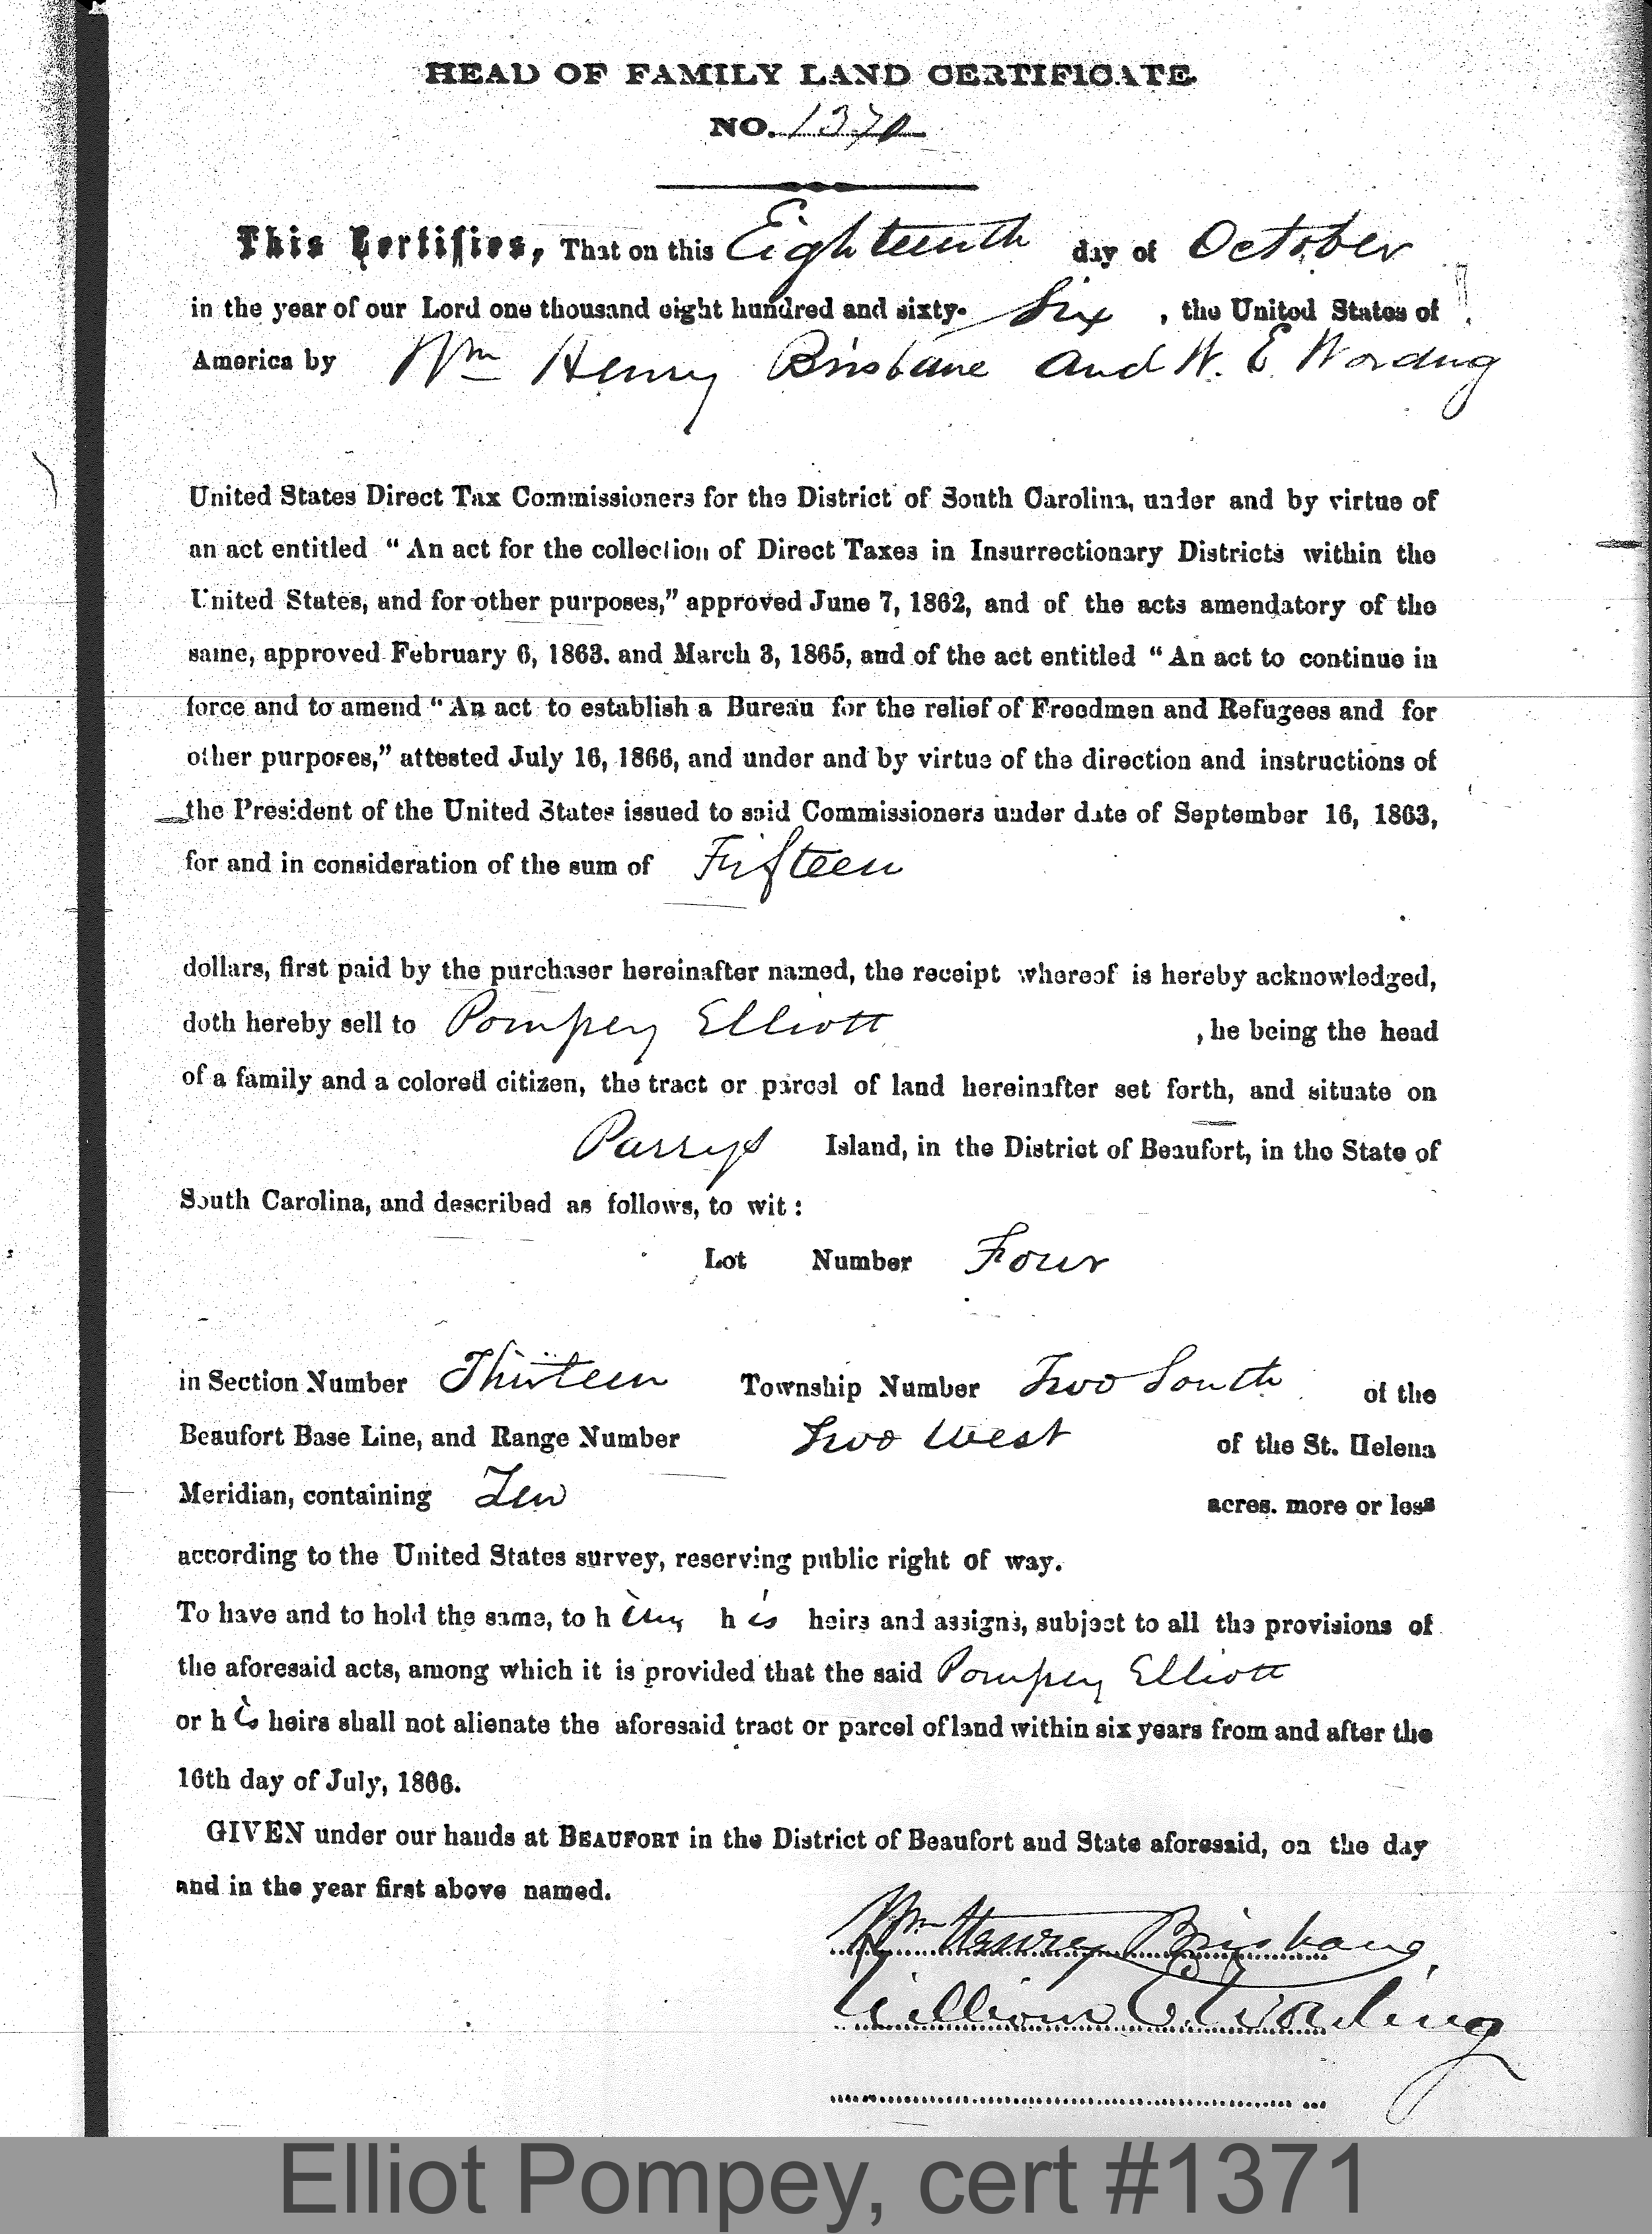 HEAD OF FAMILY LAND CERTIFICATE
NO. 1370
This Certifies, That on this Eighteenth day of October
in the year of our Lord one thousand eight hundred and sixty- Six , the United States of
America by Wm Henry Brisbane and W. E. Wording
United States Direct Tax Commissioners for the District of South Carolina, under and by virtue of
an act entitled “ An act for the collection of Direct Taxes in Insurrectionary Districts within the
United States, and for other purposes,” approved June 7, 1862, and of the acts amendatory of the
same, approved February 6, 1863. and March 3, 1865, and of the act entitled “ An act to continue in
force and to amend “ An act to establish a Bureau for the relief of Freedmen and Refugees and for
other purposes,” attested July 16, 1866, and under and by virtue of the direction and instructions of
the President of the United States issued to said Commissioners under date of September 16, 1863,
for and in consideration of the sum of Fifteen
dollars, first paid by the purchaser hereinafter named, the receipt whereof is hereby acknowledged,
doth hereby sell to Pompey Elliott , he being the head
of a family and a colored citizen, the tract or parcel of land hereinafter set forth, and situate on
Parrys Island, in the District of Beaufort, in the State of
South Carolina, and described as follows, to wit :
Lot Number Four
in Section Number Thirteen Township Number Two South of the
Beaufort Base Line, and Range Number Two West of the St. Helena
Meridian, containing Ten acres. more or less
according to the United States survey, reserving public right of way.
To have and to hold the same, to him, his heirs and assigns, subject to all the provisions of
the aforesaid acts, among which it is provided that the said Pompey Elliott
or his heirs shall not alienate the aforesaid tract or parcel of land within six years from and after the
16th day of July, 1866.
GIVEN under our hands at BEAUFORT in the District of Beaufort and State aforesaid, on the day
and in the year first above named.
Wm Henry Brisbane,
William E. Wording
Elliot Pompey, cert #1371